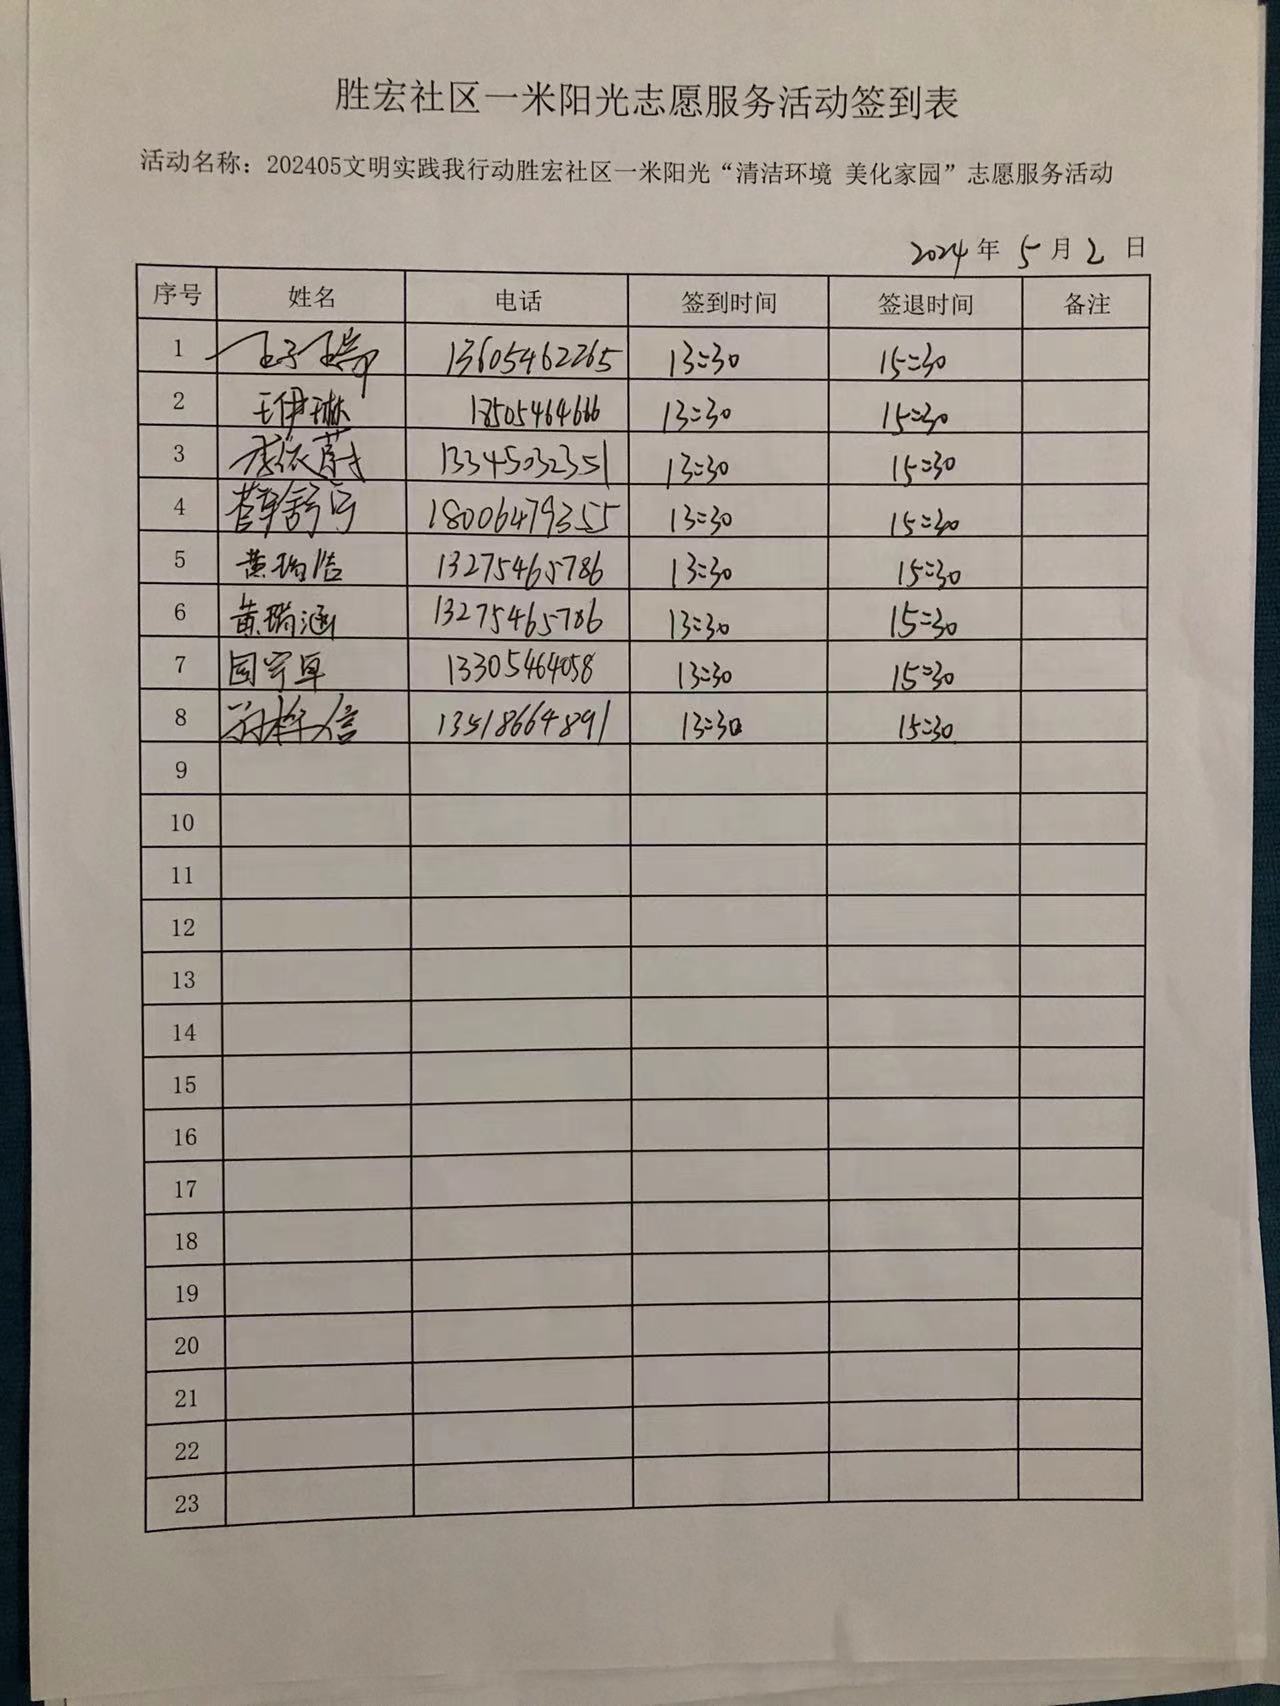 胜宏社区一米阳光志愿服务活动签到表
活动名称：202405文明实践我行动胜宏社区一米阳光“清洁环境 美化家园”志愿服务活动
2024年 5月2日
序号 姓名 电话 签到时间 签退时间 备注
1 王子瑞 13605462265 13:30 15:30
2 王伊琳 18505464666 13:30 15:30
3 李依蔚 13345032351 13:30 15:30
4 18006479355 13:30 15:30
5 黄瑞浩 13275465786 13:30 15:30
6 黄瑞涵 13275465786 13:30 15:30
7 13305464058 13:30 15:30
8 13518664891 13:30 15:30
9
10
11
12
13
14
15
16
17
18
19
20
21
22
23